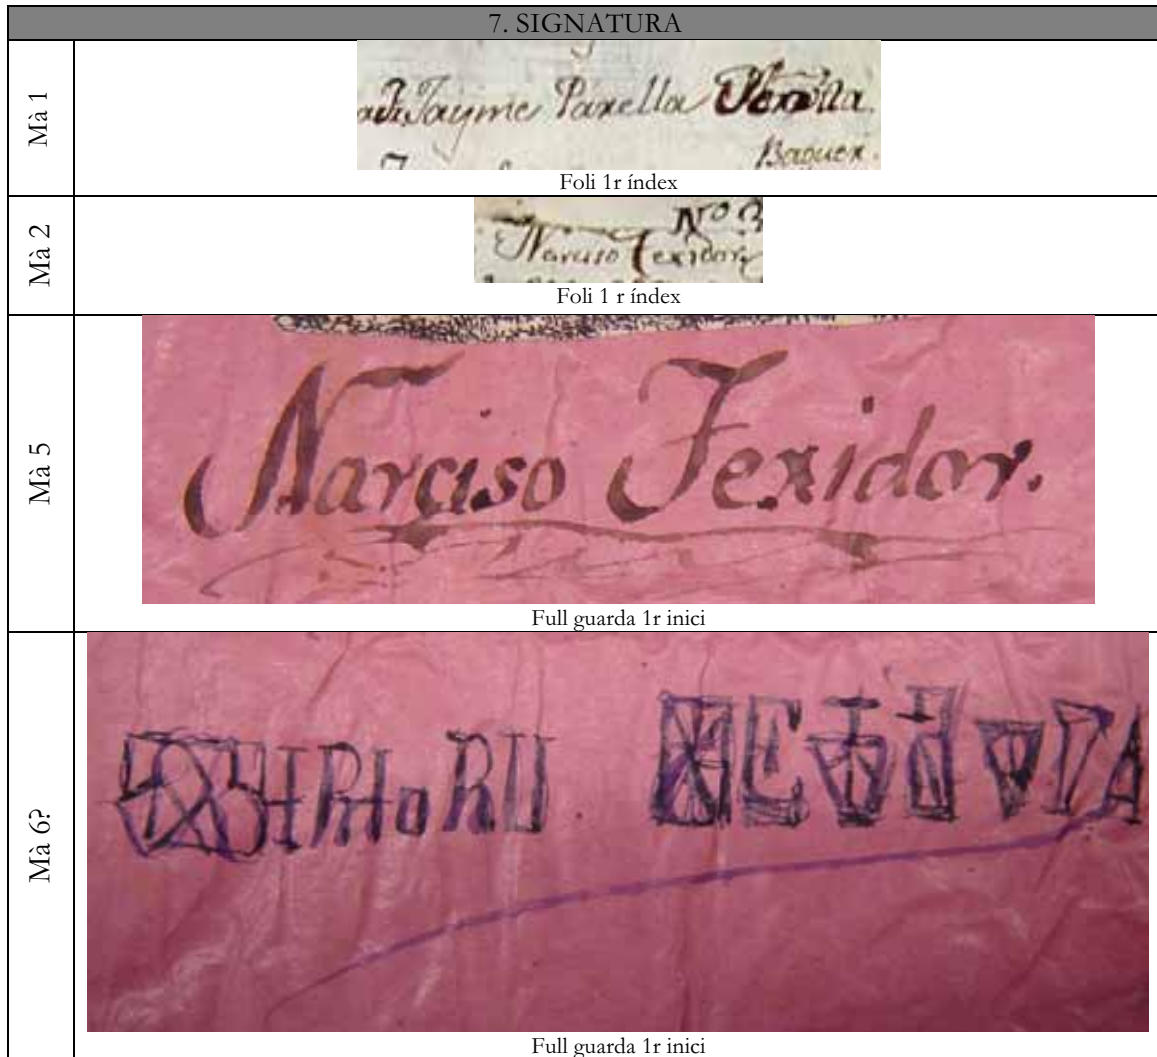 7. SIGNATURA
Mà 1
Jayme Parella
Baquer.
Foli 1r índex
Mà 2
Nº 3
Narciso Texidor
Foli 1 r índex
Mà 5
Narciso Texidor.
Full guarda 1r inici
Mà 6?
Full guarda 1r inici